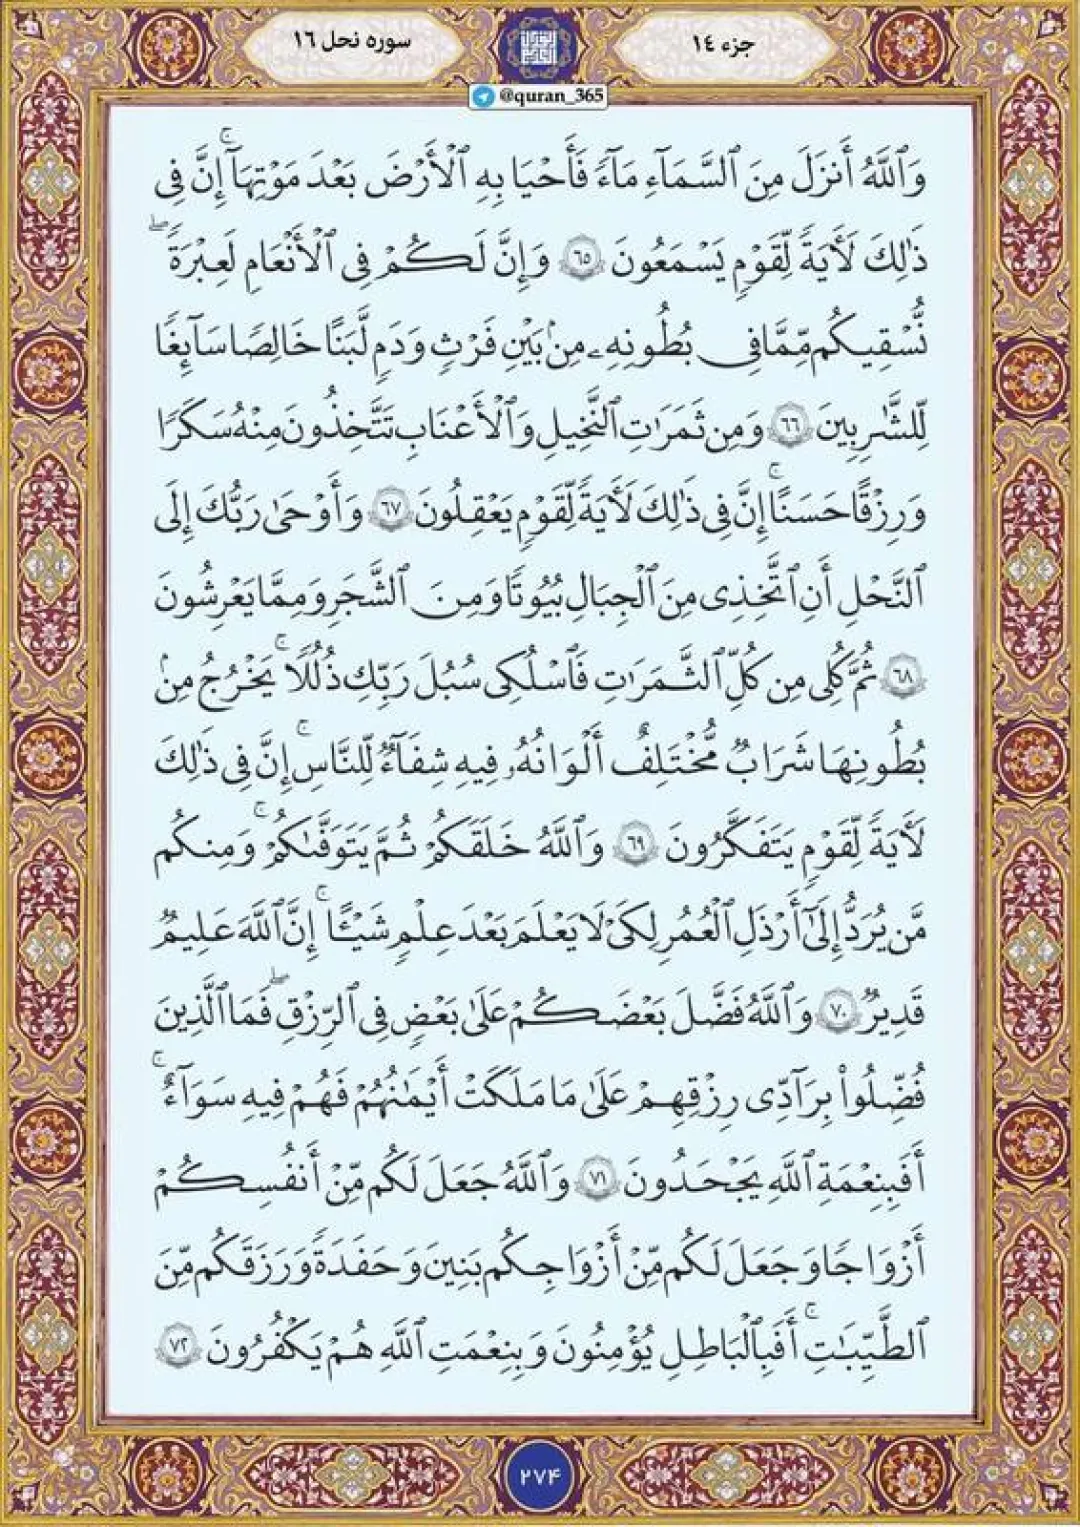 جزء ١٤
سوره نحل ١٦
@quran_365
وَٱللَّهُ أَنزَلَ مِنَ ٱلسَّمَآءِ مَآءً فَأَحْيَا بِهِ ٱلْأَرْضَ بَعْدَ مَوْتِهَآ ۚ إِنَّ فِى
ذَٰلِكَ لَـَٔايَةً لِّقَوْمٍ يَسْمَعُونَ ٦٥ وَإِنَّ لَكُمْ فِى ٱلْأَنْعَٰمِ لَعِبْرَةً ۖ
نُّسْقِيكُم مِّمَّا فِى بُطُونِهِۦ مِنۢ بَيْنِ فَرْثٍ وَدَمٍ لَّبَنًا خَالِصًا سَآئِغًا
لِّلشَّٰرِبِينَ ٦٦ وَمِن ثَمَرَٰتِ ٱلنَّخِيلِ وَٱلْأَعْنَٰبِ تَتَّخِذُونَ مِنْهُ سَكَرًا
وَرِزْقًا حَسَنًا ۚ إِنَّ فِى ذَٰلِكَ لَـَٔايَةً لِّقَوْمٍ يَعْقِلُونَ ٦٧ وَأَوْحَىٰ رَبُّكَ إِلَى
ٱلنَّحْلِ أَنِ ٱتَّخِذِى مِنَ ٱلْجِبَالِ بُيُوتًا وَمِنَ ٱلشَّجَرِ وَمِمَّا يَعْرِشُونَ
٦٨ ثُمَّ كُلِى مِن كُلِّ ٱلثَّمَرَٰتِ فَٱسْلُكِى سُبُلَ رَبِّكِ ذُلُلًا ۚ يَخْرُجُ مِنۢ
بُطُونِهَا شَرَابٌ مُّخْتَلِفٌ أَلْوَٰنُهُۥ فِيهِ شِفَآءٌ لِّلنَّاسِ ۗ إِنَّ فِى ذَٰلِكَ
لَـَٔايَةً لِّقَوْمٍ يَتَفَكَّرُونَ ٦٩ وَٱللَّهُ خَلَقَكُمْ ثُمَّ يَتَوَفَّىٰكُمْ ۚ وَمِنكُم
مَّن يُرَدُّ إِلَىٰٓ أَرْذَلِ ٱلْعُمُرِ لِكَىْ لَا يَعْلَمَ بَعْدَ عِلْمٍ شَيْـًٔا ۚ إِنَّ ٱللَّهَ عَلِيمٌ
قَدِيرٌ ٧٠ وَٱللَّهُ فَضَّلَ بَعْضَكُمْ عَلَىٰ بَعْضٍ فِى ٱلرِّزْقِ ۖ فَمَا ٱلَّذِينَ
فُضِّلُوا۟ بِرَآدِّى رِزْقِهِمْ عَلَىٰ مَا مَلَكَتْ أَيْمَٰنُهُمْ فَهُمْ فِيهِ سَوَآءٌ ۚ
أَفَبِنِعْمَةِ ٱللَّهِ يَجْحَدُونَ ٧١ وَٱللَّهُ جَعَلَ لَكُم مِّنْ أَنفُسِكُمْ
أَزْوَٰجًا وَجَعَلَ لَكُم مِّنْ أَزْوَٰجِكُم بَنِينَ وَحَفَدَةً وَرَزَقَكُم مِّنَ
ٱلطَّيِّبَٰتِ ۚ أَفَبِٱلْبَٰطِلِ يُؤْمِنُونَ وَبِنِعْمَتِ ٱللَّهِ هُمْ يَكْفُرُونَ ٧٢
٢٧۴